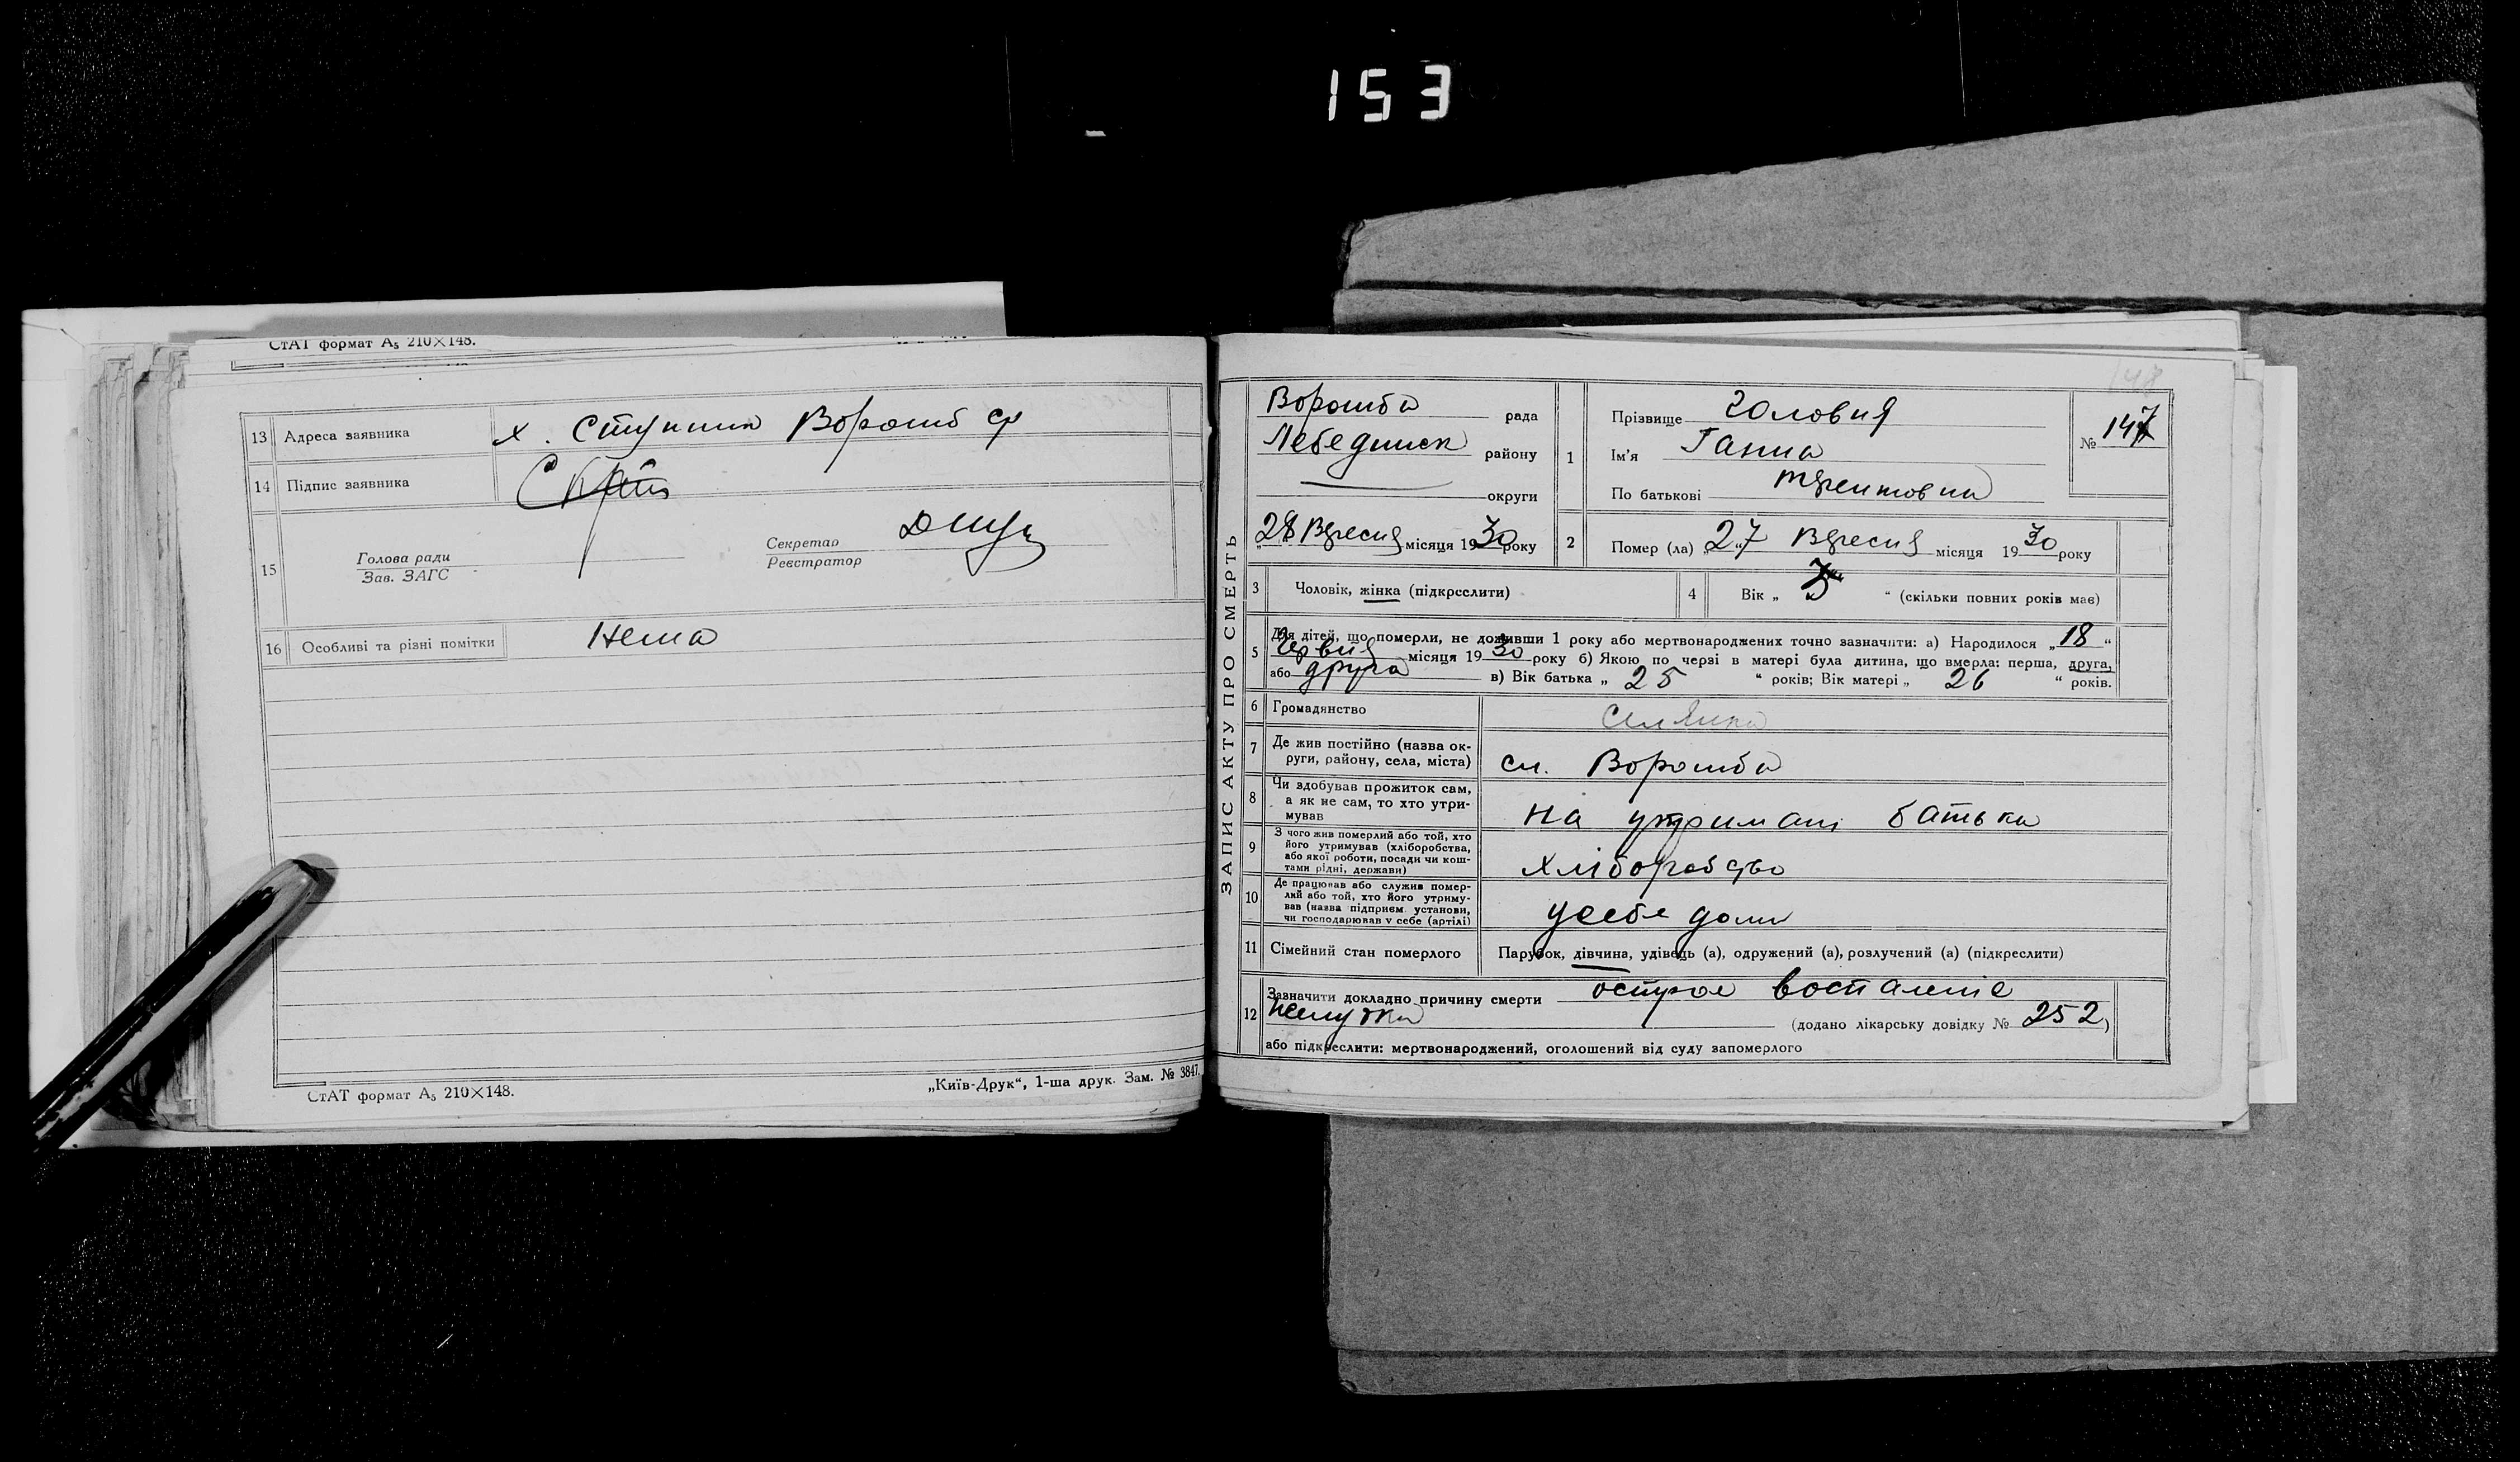 153
СтАТ формат А₅ 210×148.
13 Адреса заявника х. Ступки Ворожб ср
14 Підпис заявника
15 Голова ради
Зав. ЗАГС
Секретар
Реєстратор
16 Особливі та різні помітки Нема
СтАТ формат А₅ 210×148.
„Київ-Друк“, 1-ша друк. Зам. № 3847.
148
ЗАПИС АКТУ ПРО СМЕРТЬ
Ворожба рада
Лебединск району
округи
„28 Вересня місяця 1930 року
1 Прізвище Головня
Ім'я Ганна
По батькові
№ 147
2 Помер (ла) „27 Вересня місяця 1930 року
3 Чоловік, жінка (підкреслити)
4 Вік „ “ (скільки повних років має)
5 Для дітей, що померли, не доживши 1 року або мертвонароджених точно зазначити: а) Народилося „18“
Червня місяця 1930 року б) Якою по черзі в матері була дитина, що вмерла: перша, друга,
або друга в) Вік батька „ 25 “ років; Вік матері „ 26 “ років.
6 Громадянство Селянка
7 Де жив постійно (назва ок-
руги, району, села, міста) сл. Ворожба
8 Чи здобував прожиток сам,
а як не сам, то хто утри-
мував На утримані батька
9 З чого жив померлий або той, хто
його утримував (хліборобства,
або якої роботи, посади чи кош-
тами рідні, держави) хліборобство
10 Де працював або служив помер-
лий або той, хто його утриму-
вав (назва підприєм. установи,
чи господарював у себе (артілі) усебе дома
11 Сімейний стан померлого Парубок, дівчина, удівець (а), одружений (а), розлучений (а) (підкреслити)
12 Зазначити докладно причину смерти острое воспаленіе
желутка (додано лікарську довідку № 252)
або підкреслити: мертвонароджений, оголошений від суду запомерлого